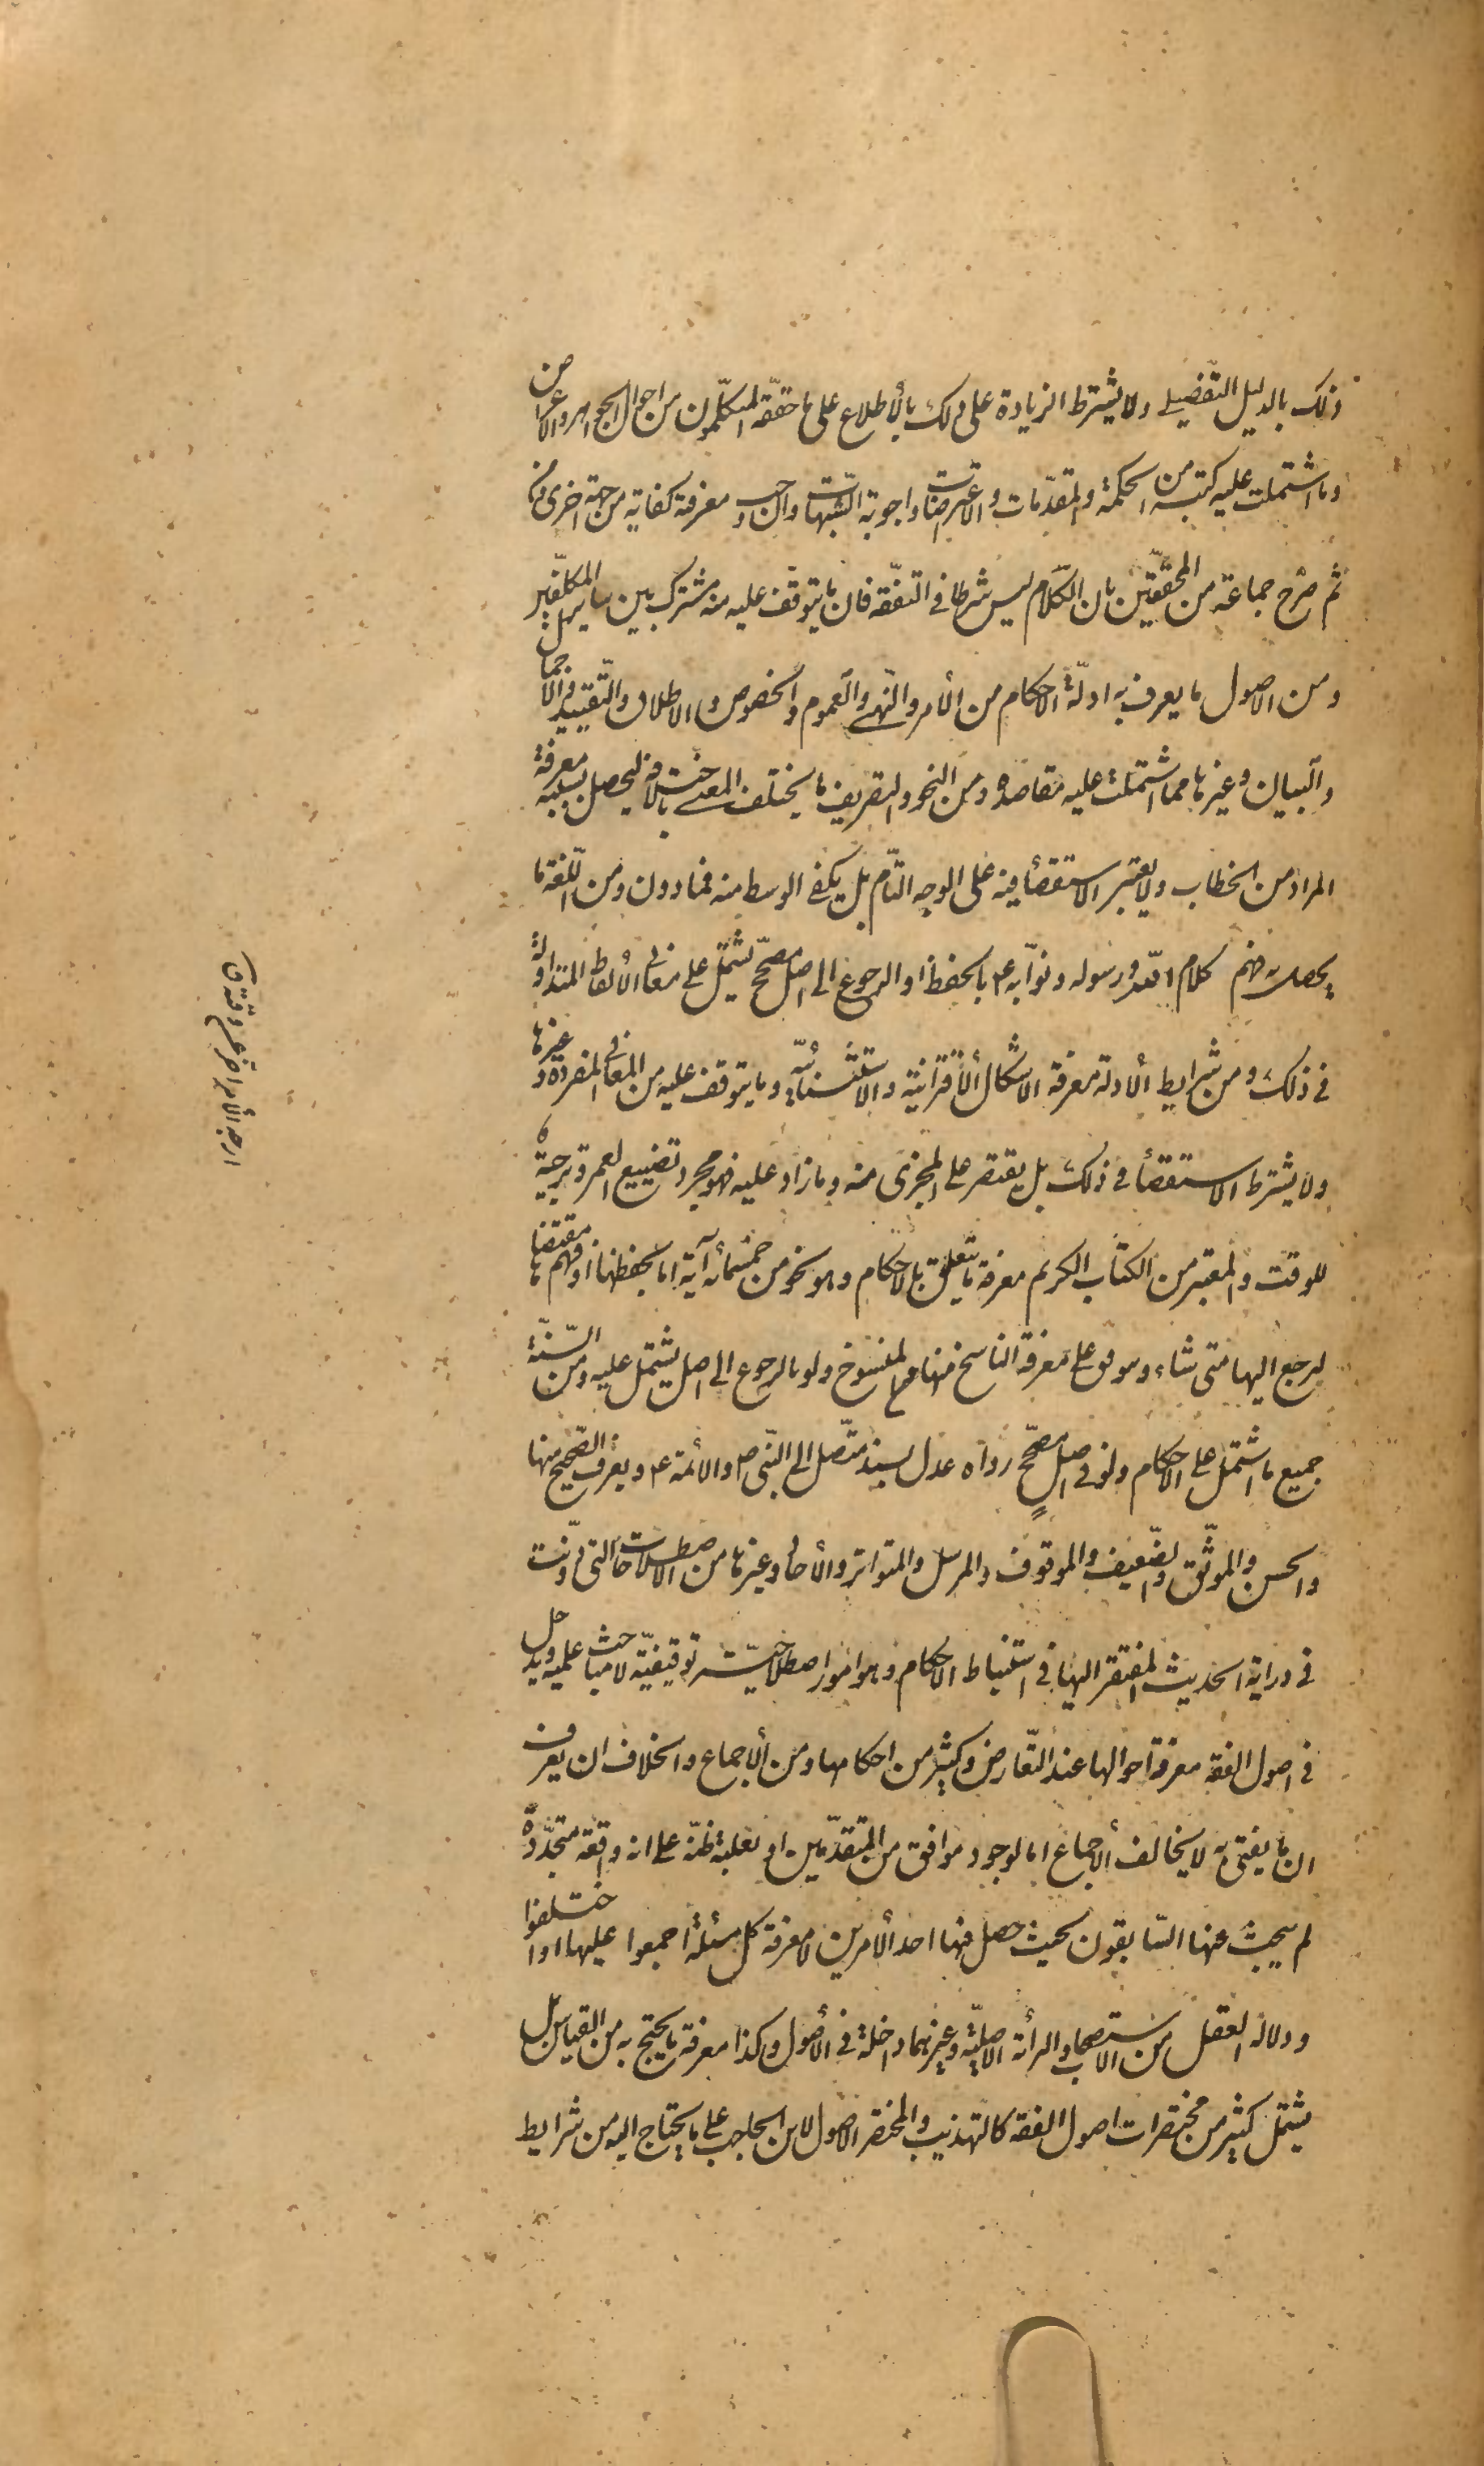 ذلك بالدليل التفصيلي ولا يشترط الزيادة على ذلك بالأطلاع على ما حققه المتكلمون من احوال الجواهر والاعراض
وما اشتملت عليه كتبه من الحكمة والمقدمات والاعتراضات واجوبة الشبهات وان وجب معرفته كفاية من جهة اخرى ومن
ثم صرح جماعة من المحققين بان الكلام ليس شرطا في التفقه فان ما يتوقف عليه منه مشترك بين ساير المكلفين
ومن الاصول ما يعرف به ادلة الاحكام من الأمر والنهي والعموم والخصوص والاطلاق والتقييد والاجمال
والبيان وغيرها مما اشتملت عليه مقاصده ومن النحو والتصريف ما يختلف المعنى باختلافه ليحصل بسببه معرفة
المراد من الخطاب ولا يعتبر الاستقصأ فيه على الوجه التام بل يكفي الوسط منه فما دون ومن اللغة ما
يحصل به فهم كلام الله ورسوله ونوابه ع بالحفظ او الرجوع الى اصل مصحح يشتمل على معاني الألفاظ المتداولة
في ذلك ومن شرايط الأدلة معرفة الاشكال الأقترانية والاستثنائية وما يتوقف عليه من المعاني المفردة وغيرها
ولا يشترط الاستقصأ في ذلك بل يقتصر على المجزي منه وما زاد عليه فهو مجرد تضييع للعمر وتزجية
للوقت والمعتبر من الكتاب الكريم معرفة ما يتعلق بالاحكام وهو نحو من خمسمائه آية اما بحفظها او فهم مقتضاها
ليرجع اليها متى شاء ويتوقف على معرفة الناسخ منها من المنسوخ ولو بالرجوع الى اصل يشتمل عليه ومن السنة
جميع ما اشتمل على الاحكام ولو في اصل مصحح رواه عدل بسند متصل الى النبي ص والأئمة ع ويعرف الصحيح منها
والحسن والموثق والضعيف والموقوف والمرسل والمتواتر والأحاد وغيرها من الاصطلاحات التي دونت
في دراية الحديث المفتقر اليها في استنباط الاحكام وهو امور اصطلاحية توقيفية لا مباحث علمية ويدخل
في اصول الفقه معرفة احوالها عند التعارض وكثير من احكامها ومن الأجماع والخلاف ان يعرف
ان ما يفتي به لا يخالف الأجماع اما لوجود موافق من المتقدمين او بغلبة ظنه على انه واقعة متجددة
لم يبحث عنها السابقون بحيث حصل فيها احد الأمرين لا معرفة كل مسئلة اجمعوا عليها او اختلفوا
ودلالة العقل من الاستصحاب والبرأة الاصلية وغيرهما داخلة في الأصول وكذا معرفة ما يحتج به من القياس بل
يشتمل كثير من مختصرات اصول الفقه كالتهذيب والمختصر الأصول لابن الحاجب على ما يحتاج اليه من شرايط